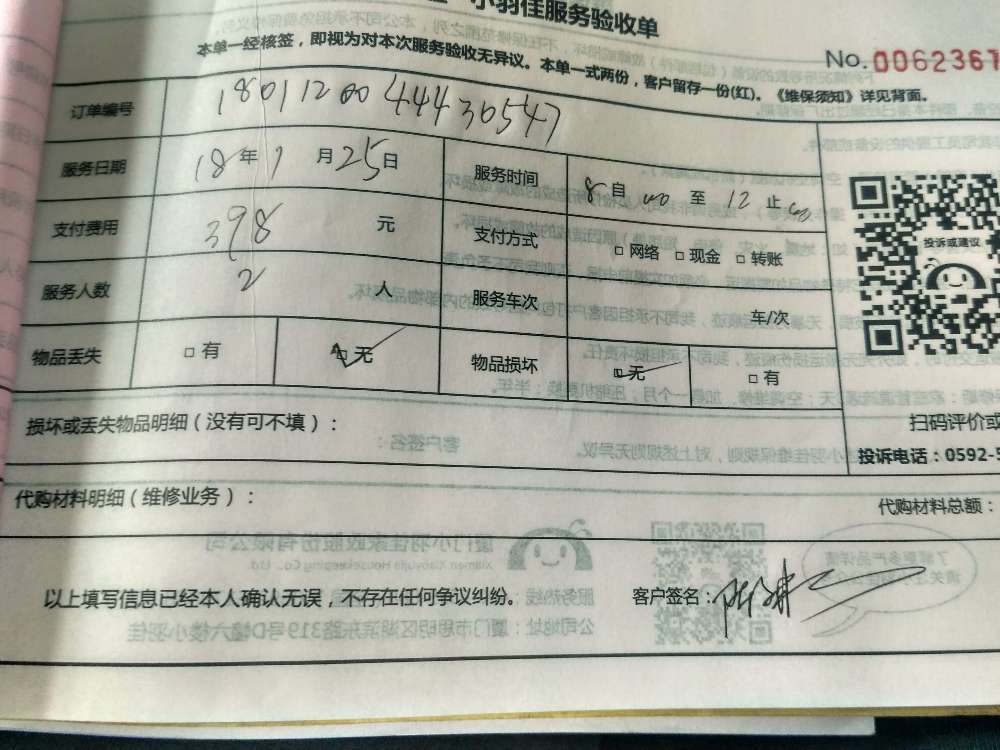 小羽佳服务验收单
No.0062367
本单一经核签，即视为对本次服务验收无异议。本单一式两份，客户留存一份(红)。《维保须知》详见背面。
订单编号 1801120044430547
服务日期 18年1月25日 服务时间 8自00至12止00
支付费用 398元 支付方式 □网络 □现金 □转账
服务人数 2人 服务车次 车/次
投诉或建议
物品丢失 □有 □无 物品损坏 □无 □有
损坏或丢失物品明细（没有可不填）：
扫码评价或
投诉电话：0592-5
代购材料明细（维修业务）：
代购材料总额：
以上填写信息已经本人确认无误，不存在任何争议纠纷。 客户签名：